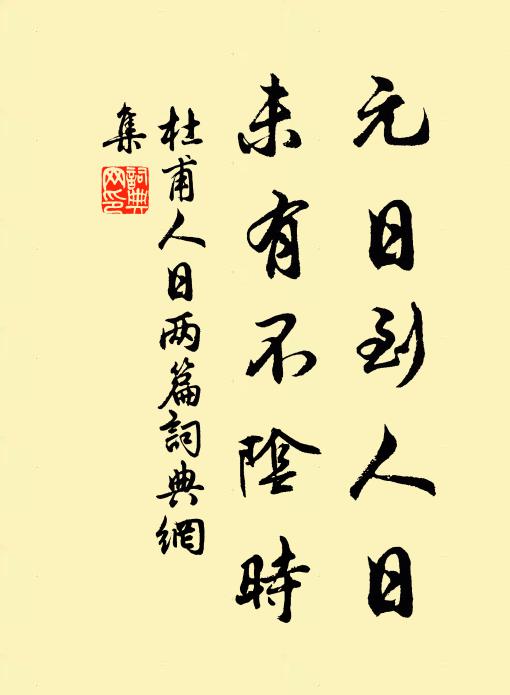 元日到人日
未有不陰時
杜甫人日两篇詞典網
集
詞典
网印